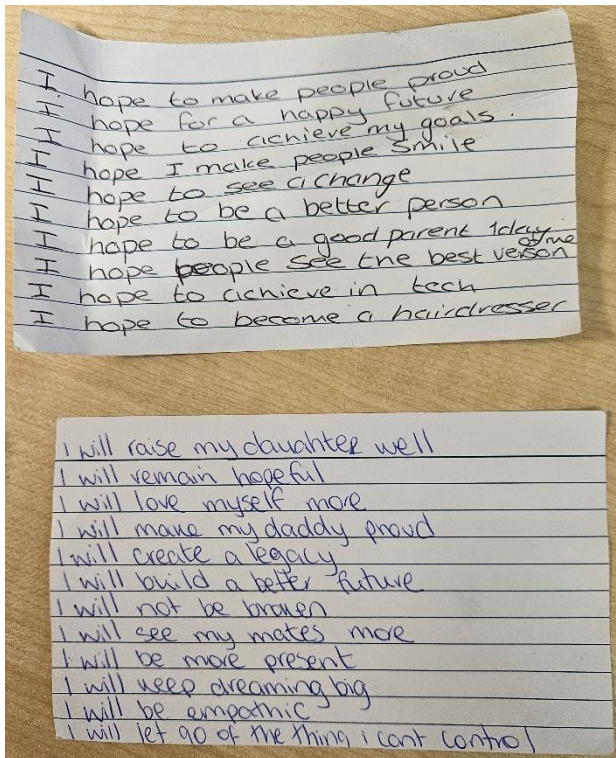 I hope to make people proud
I hope for a happy future
I hope to achieve my goals.
I hope I make people smile
I hope to see a change
I hope to be a better person
I hope to be a good parent 1day
I hope people see the best verson of me
I hope to achieve in tech
I hope to become a hairdresser
I will raise my daughter well
I will remain hopeful
I will love myself more
I will make my daddy proud
I will create a legacy
I will build a better future
I will not be broken
I will see my mates more
I will be more present
I will keep dreaming big
I will be empathic
I will let go of the thing i cant control